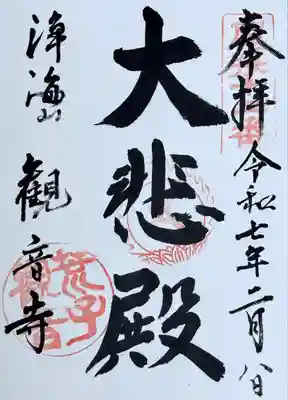 奉拝
令和七年二月八日
大悲殿
浄海山
観音寺